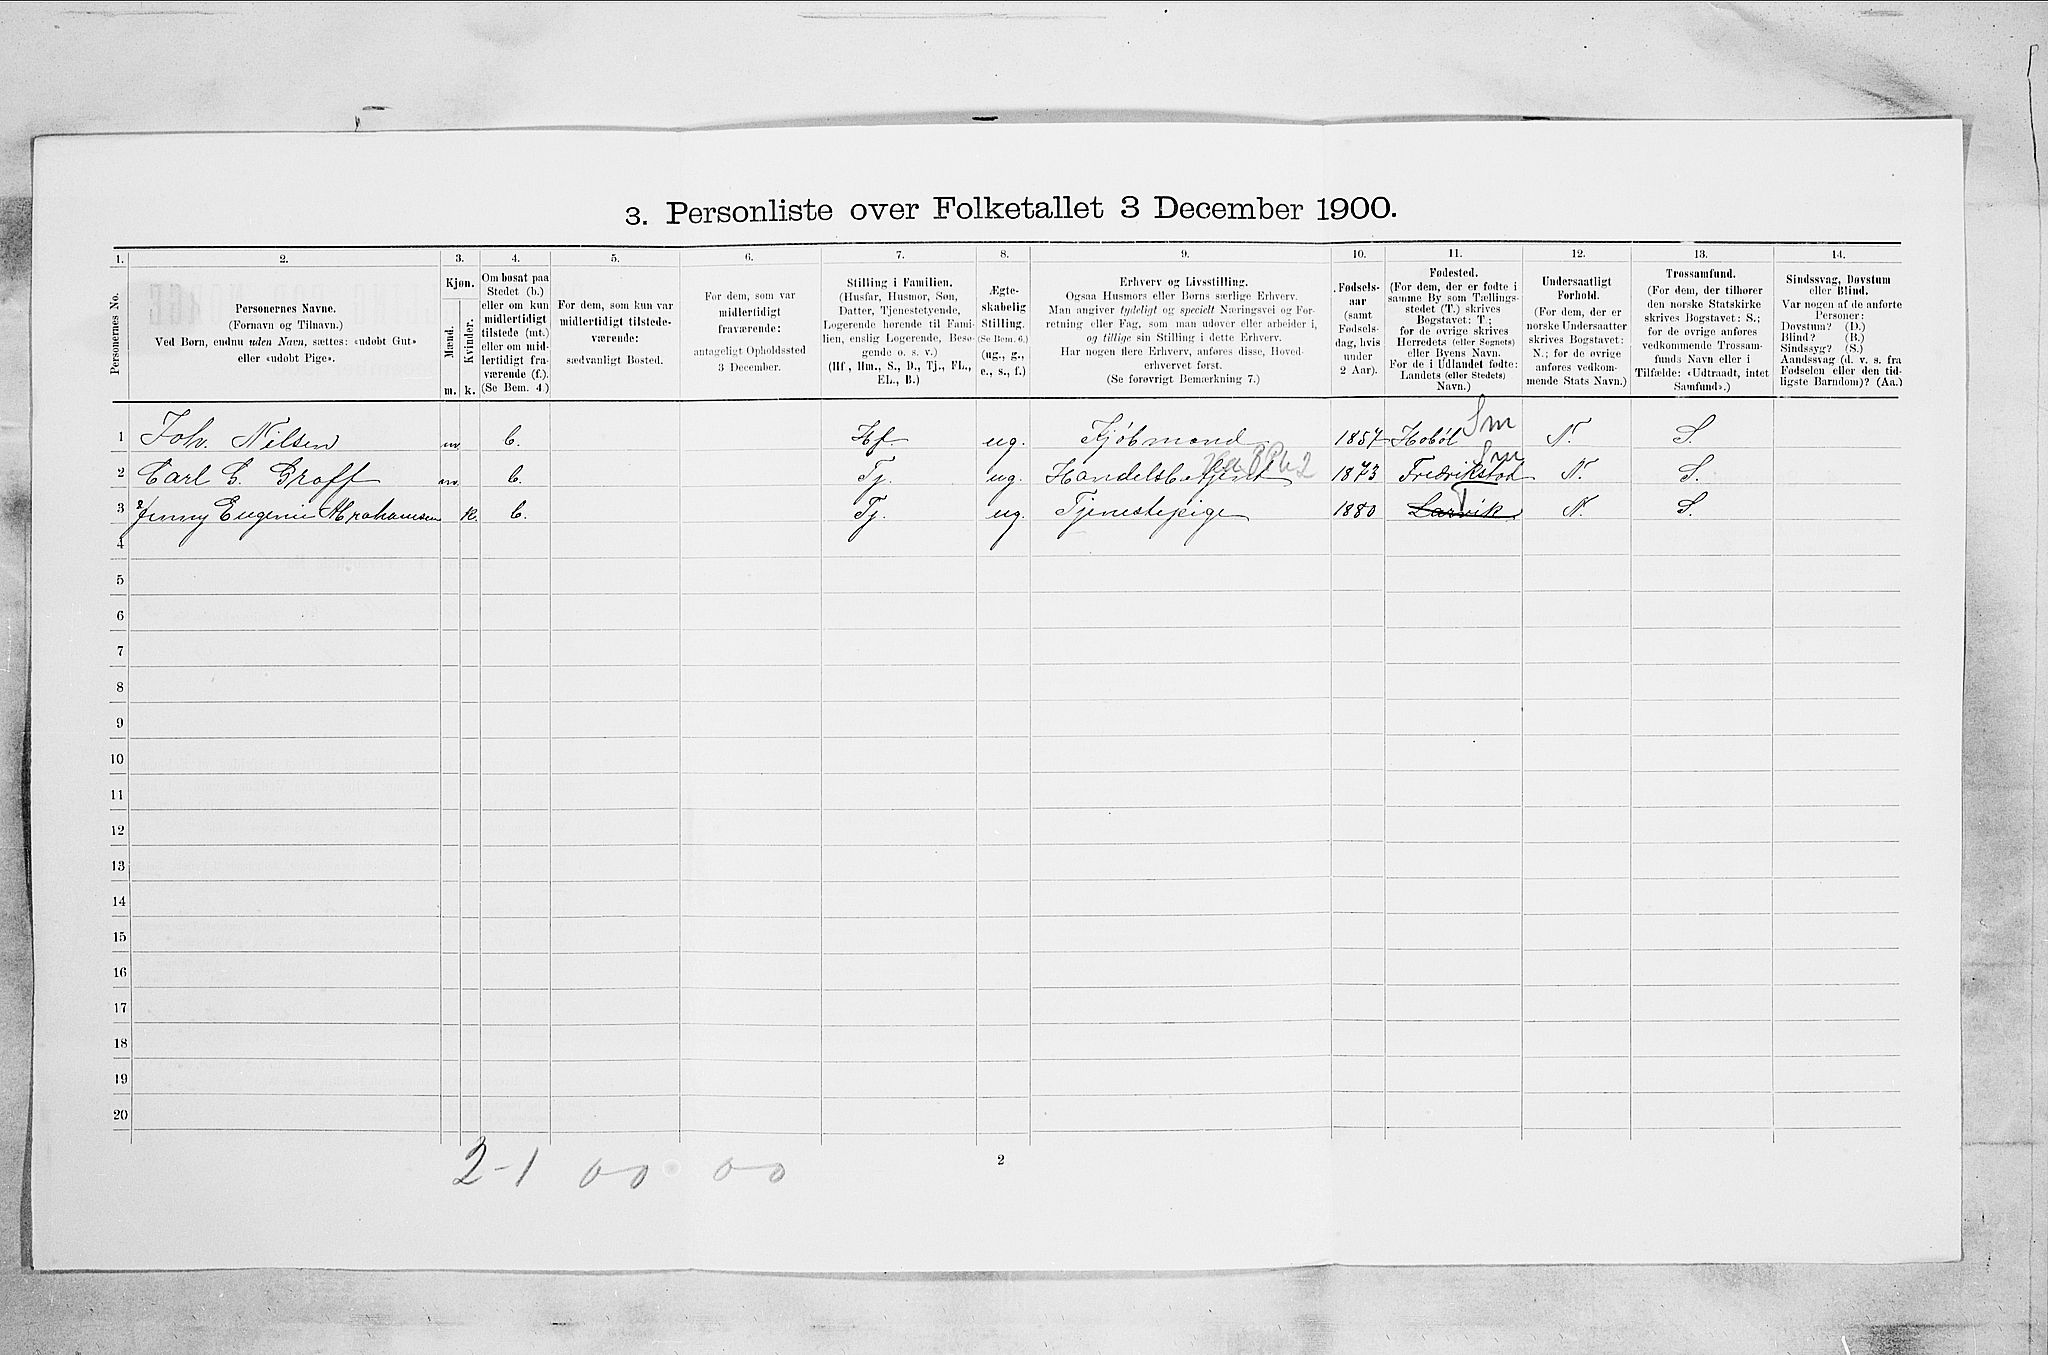 3. Personliste over Folketallet 3 December 1900.
1. 2. 3. 4. 5. 6. 7. 8. 9. 10. 11. 12. 13. 14.
Personernes No.
Personernes Navne.
(Fornavn og Tilnavn.)
Ved Børn, endnu uden Navn, sættes: «udøbt Gut»
eller «udøbt Pige».
Kjøn.
Mænd.
Kvinder.
m. k.
Om bosat paa
Stedet (b.)
eller om kun
midlertidigt
tilstede (mt.)
eller om mid-
lertidigt fra-
værende (f.).
(Se Bem. 4.)
For dem, som kun var
midlertidigt tilstede-
værende:
sædvanligt Bosted.
For dem, som var
midlertidigt
fraværende:
antageligt Opholdssted
3 December.
Stilling i Familien.
(Husfar, Husmor, Søn,
Datter, Tjenestetyende,
Logerende hørende til Fami-
lien, enslig Logerende, Besø-
gende o. s. v.)
(Hf, Hm., S., D., Tj., FL.,
EL., B.)
Ægte-
skabelig
Stilling.
(Se Bem. 6.)
(ug., g.,
e., s., f.)
Erhverv og Livsstilling.
Ogsaa Husmors eller Børns særlige Erhverv.
Man angiver tydeligt og specielt Næringsvei og For-
retning eller Fag, som man udøver eller arbeider i,
og tillige sin Stilling i dette Erhverv.
Har nogen flere Erhverv, anføres disse, Hoved-
erhvervet først.
(Se forøvrigt Bemærkning 7.)
Fødsels-
aar
(samt
Fødsels-
dag, hvis
under
2 Aar).
Fødested.
(For dem, der er fødte i
samme By som Tællings-
stedet (T.) skrives
Bogstavet: T;
for de øvrige skrives
Herredets (eller Sognets)
eller Byens Navn.
For de i Udlandet fødte:
Landets (eller Stedets)
Navn.)
Undersaatligt
Forhold.
(For dem, der er
norske Undersaatter
skrives Bogstavet:
N.; for de øvrige
anføres vedkom-
mende Stats Navn.)
Trossamfund.
(For dem, der tilhører
den norske Statskirke
skrives Bogstavet: S.;
for de øvrige anføres
vedkommende Trossam-
funds Navn eller i
Tilfælde: «Udtraadt, intet
Samfund».)
Sindssvag, Døvstum
eller Blind.
Var nogen af de anførte
Personer:
Døvstum? (D.)
Blind? (B.)
Sindssyg? (S.)
Aandssvag (d. v. s. fra
Fødselen eller den tid-
ligste Barndom)? (Aa.)
1 Joh. Nilsen m. b. Hf. ug. Kjøbmand 1857 Hobøl Sm N. S.
2 Carl G. Groff m. b. Tj. ug. Handelsbetjent 2 1873 Fredrikstad Sm N. S.
3 Jenny Eugenie Abrahamsen k. b. Tj. ug. Tjenestepige 1880 Larvik T N. S.
4
5
6
7
8
9
10
11
12
13
14
15
16
17
18
19
20
2-1 0-0 0-0
2